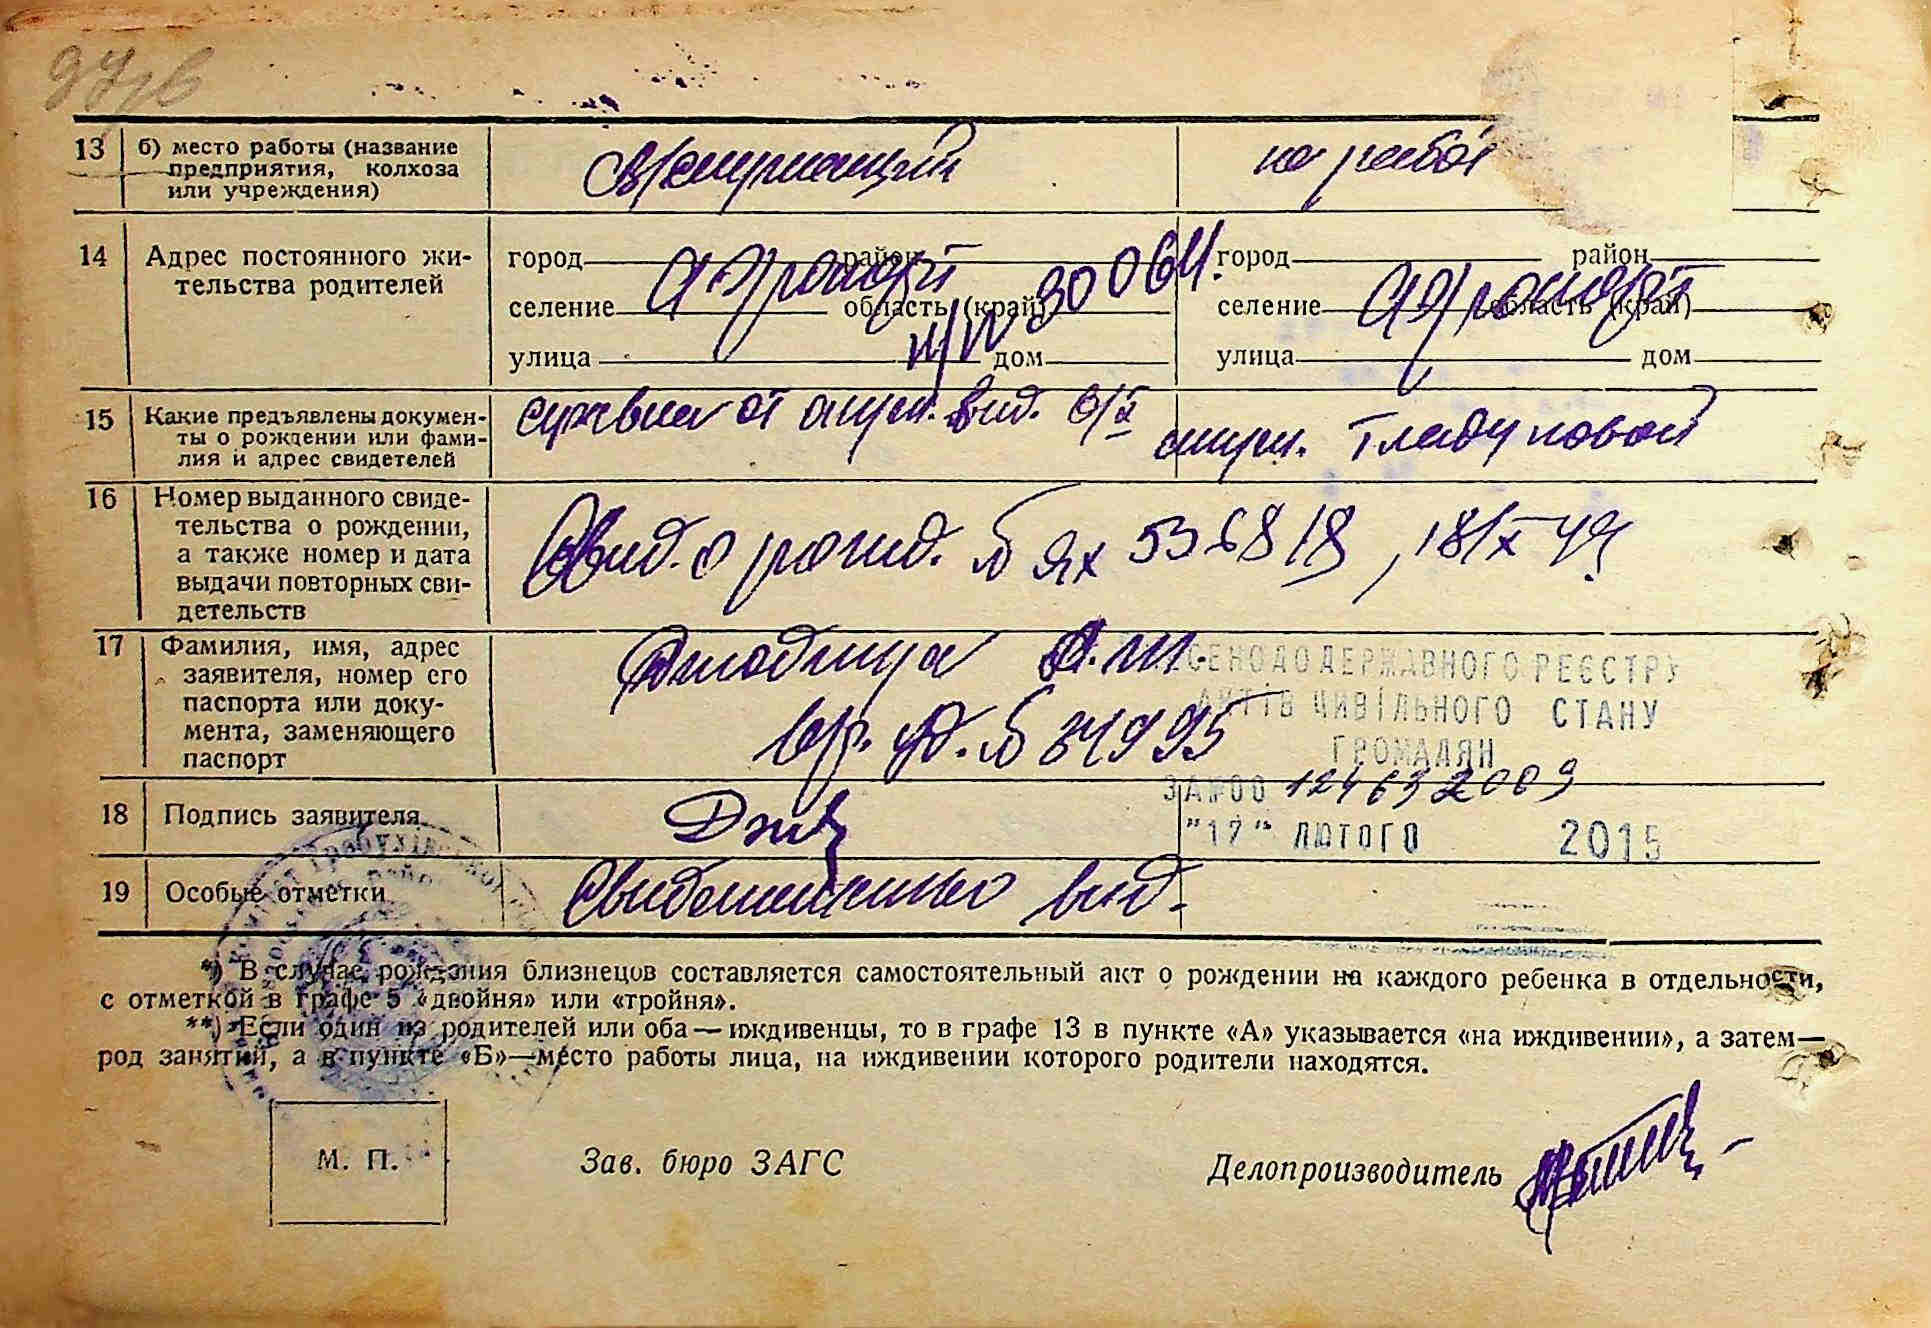 13 б) место работы (название
предприятия, колхоза
или учреждения)
14 Адрес постоянного жи-
тельства родителей
город район
селение область (край)
улица дом
город район
селение область (край)
улица дом
Аэропорт 30064.
Аэропорт
15 Какие предъявлены докумен-
ты о рождении или фами-
лия и адрес свидетелей
справка от акуш. вид. 6/X
акуш. Гладуновой
16 Номер выданного свиде-
тельства о рождении,
а также номер и дата
выдачи повторных сви-
детельств
Свид. о рожд. № ЯХ 536818, 18/X 49
17 Фамилия, имя, адрес
заявителя, номер его
паспорта или доку-
мента, заменяющего
паспорт
вр. уд. № 84995
ДЕРЖАВНОГО РЕЄСТРУ
АКТІВ ЦИВІЛЬНОГО СТАНУ
ГРОМАДЯН
ЗА №00 124632009
"17" ЛЮТОГО 2015
18 Подпись заявителя
19 Особые отметки
вид.
*) В случае рождения близнецов составляется самостоятельный акт о рождении на каждого ребенка в отдельности,
с отметкой в графе 5 «двойня» или «тройня».
**) Если один из родителей или оба — иждивенцы, то в графе 13 в пункте «А» указывается «на иждивении», а затем—
род занятий, а в пункте «Б»—место работы лица, на иждивении которого родители находятся.
М. П. Зав. бюро ЗАГС Делопроизводитель